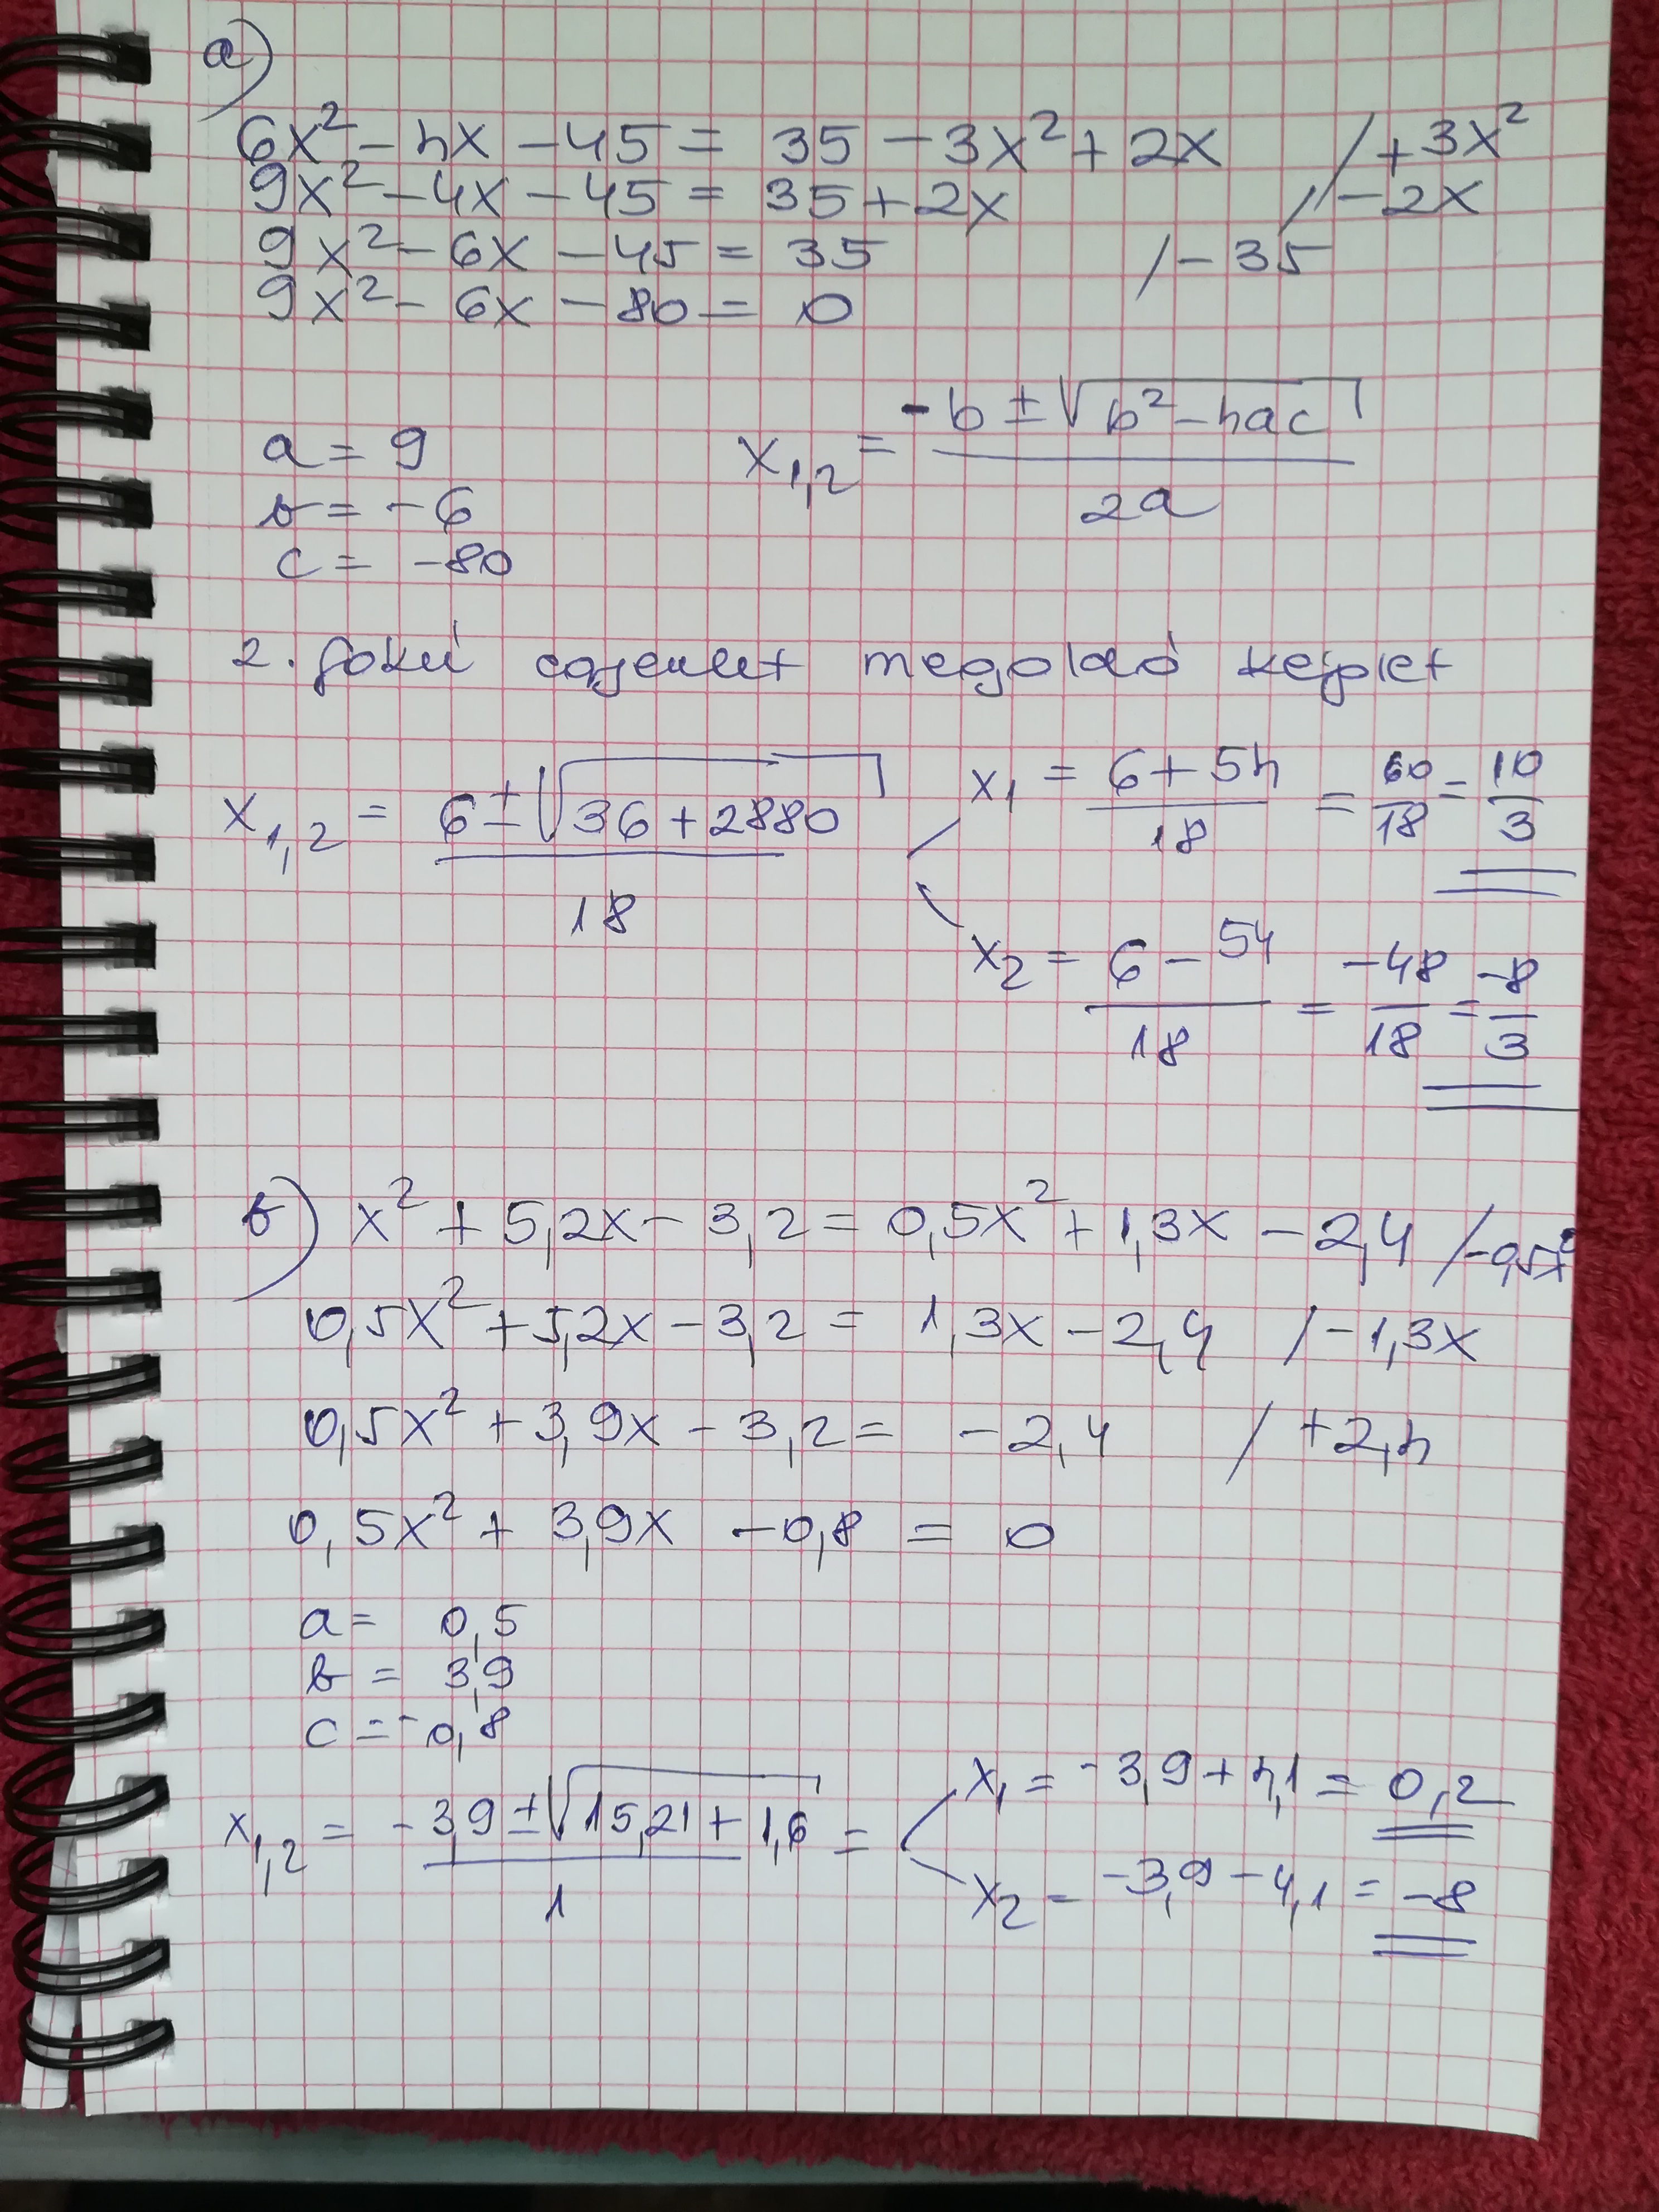 a)
6x² - 4x - 45 = 35 - 3x² + 2x / +3x²
9x² - 4x - 45 = 35 + 2x / -2x
9x² - 6x - 45 = 35 / -35
9x² - 6x - 80 = 0
a = 9
b = -6
c = -80
x₁,₂ = (-b ± √(b² - 4ac)) / 2a
2. fokú egyenlet megoldó képlet
x₁,₂ = (6 ± √(36 + 2880)) / 18
x₁ = (6 + 54) / 18 = 60/18 = 10/3
x₂ = (6 - 54) / 18 = -48/18 = -8/3
b) x² + 5,2x - 3,2 = 0,5x² + 1,3x - 2,4 / -0,5x²
0,5x² + 5,2x - 3,2 = 1,3x - 2,4 / -1,3x
0,5x² + 3,9x - 3,2 = -2,4 / +2,4
0,5x² + 3,9x - 0,8 = 0
a = 0,5
b = 3,9
c = -0,8
x₁,₂ = (-3,9 ± √(15,21 + 1,6)) / 1 =
x₁ = -3,9 + 4,1 = 0,2
x₂ = -3,9 - 4,1 = -8